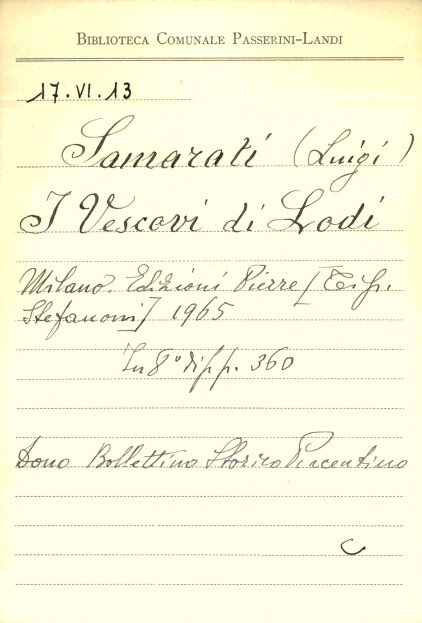 BIBLIOTECA COMUNALE PASSERINI-LANDI
17.VI.13
Samarati (Luigi)
I Vescovi di Lodi
Milano. Edizioni Pierre [Tip.
Stefanoni] 1965
In 8° di pp. 360
Dono Bollettino Storico Piacentino
C